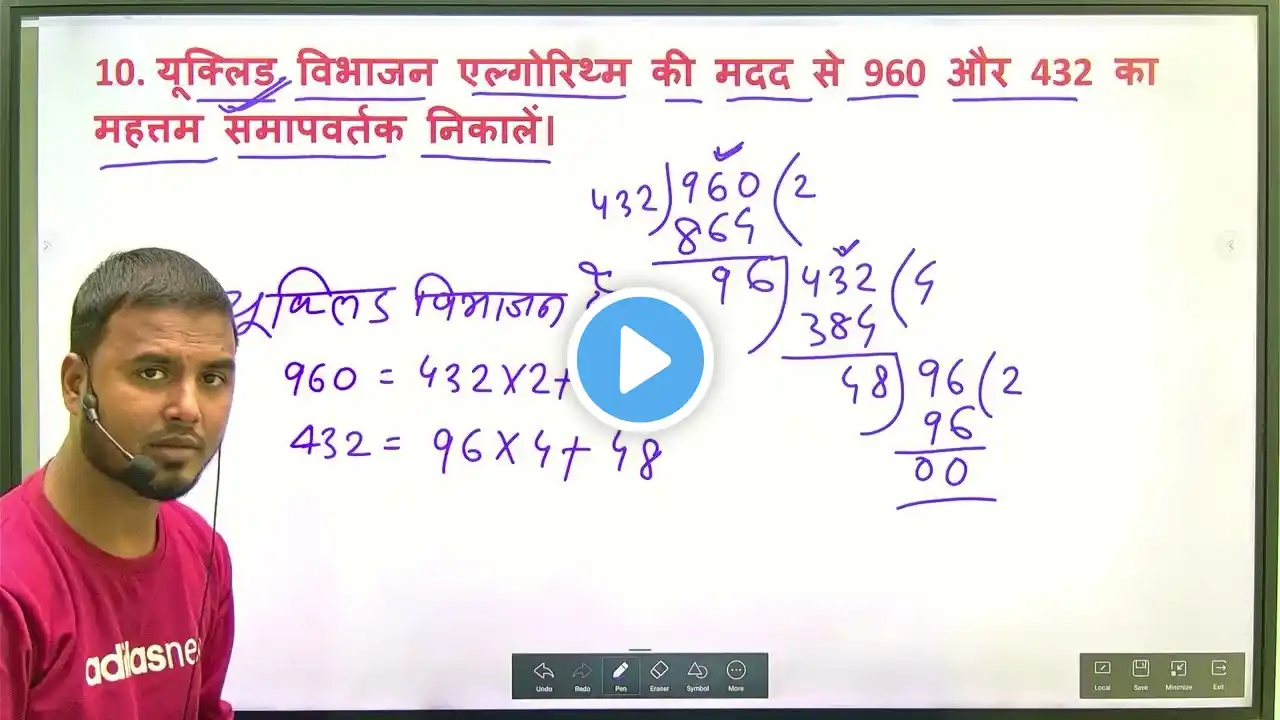 10. यूक्लिड विभाजन एल्गोरिथ्म की मदद से 960 और 432 का
महत्तम समापवर्तक निकालें।
432)960(2
864
96)432(4
384
48)96(2
96
00
यूक्लिड विभाजन
960 = 432×2+
432 = 96×4+48
adidasneo
Undo Redo Pen Eraser Symbol More
Local Save Minimize Exit